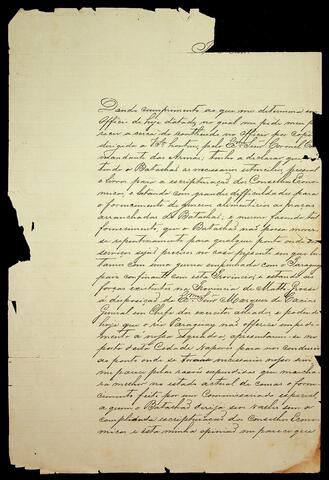 Dando cumprimento ao que me determina em
Officio de hoje datado, no qual me pede meu pa
recer a cerca do conteudo no Officio por copia
dirigido a V.Sª hontem pelo Exmº Senr Coronel Com
mandante das Armas; tenho a declarar que
tendo o Batalhão as necessarias
livros para a escripturação do Conselho Econo
mico, e lutando com grande difficuldades para
o fornecimento de generos alimenticios as praças
arranchadas do Batalhão, e mesmo fazendo tal
fornecimento, que o Batalhão não possa mover
se repentinamente para qualquer ponto onde os
serviços sejão precisos por nas que
tamos com em guerra com o Paraguay
paiz confinante com esta Provincia, e estando as
forças existentes na Provincia de Matto Grosso
á disposição do Exmº Senr Marquez de Caxias
General em Chefe dos exercitos alliados, e podendo
hoje que o rio Paraguay não offerece impedi
mento á nossa esquadra, apresentar-se no
porto desta Cidade vapores para conduzir
ao ponto onde se torne necessario nossa
me parece pelas rasões expendidas que marcha
rá melhor no estado actual de cousas o forne
cimento feito por um Commissariado especial,
a quem o Batalhão dirija seu vales sem a
complicada escripturação dos Conselhos Econo
micos e esta minha opinião me parece que